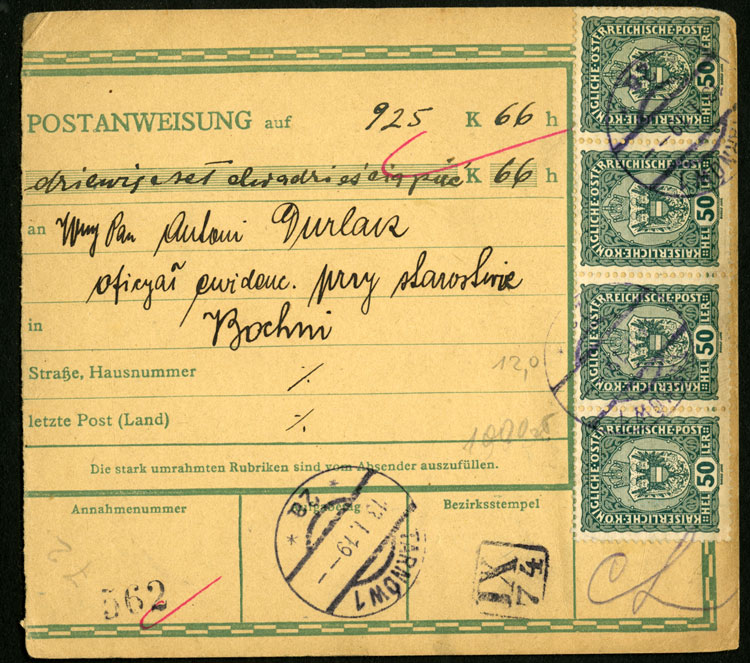 POSTANWEISUNG auf 925 K 66 h
dziewięset dwadzieścia pięć K 66 h
an Wny Pan Antoni Durlak
oficyał ewidenc. przy starostwie
in Bochni
Straße, Hausnummer ./.
letzte Post (Land) ./.
Die stark umrahmten Rubriken sind vom Absender auszufüllen.
Annahmenummer
562
2a
13.I.19
TARNÓW 1
Bezirksstempel
IX
74
12,0
KAISERLICHE-KÖNIGLICHE-ÖSTERREICHISCHE-POST
50 HELLER
KAISERLICHE-KÖNIGLICHE-ÖSTERREICHISCHE-POST
50 HELLER
KAISERLICHE-KÖNIGLICHE-ÖSTERREICHISCHE-POST
50 HELLER
KAISERLICHE-KÖNIGLICHE-ÖSTERREICHISCHE-POST
50 HELLER